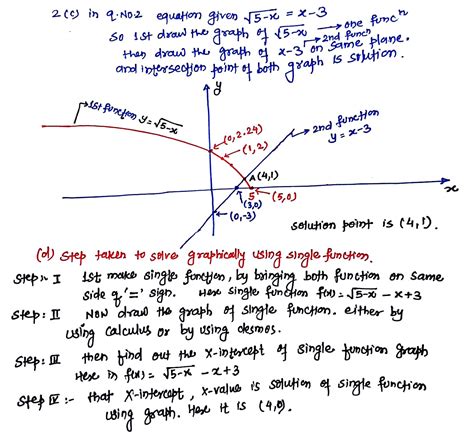 2(c) in q.no.2 equation given √5-x = x-3
so 1st draw the graph of √5-x → one funcⁿ
then draw the graph of x-3 → 2nd funcⁿ on same plane.
and intersection point of both graph is solution.
y
1st function y = √5-x
(0, 2.24)
(1, 2)
2nd function
y = x-3
A(4,1)
5
(5,0)
x
(3,0)
(0,-3)
solution point is (4,1).
(d) Step taken to solve graphically using single function.
Step:- I 1st make single function, by bringing both function on same
side of '=' sign. Here single function f(x) = √5-x -x+3
Step: II Now draw the graph of single function. either by
using calculus or by using desmos.
Step: III then find out the x-intercept of single function graph
Here in f(x) = √5-x -x+3
Step IV :- that x-intercept, x-value is solution of single function
using graph. Here it is (4,0).